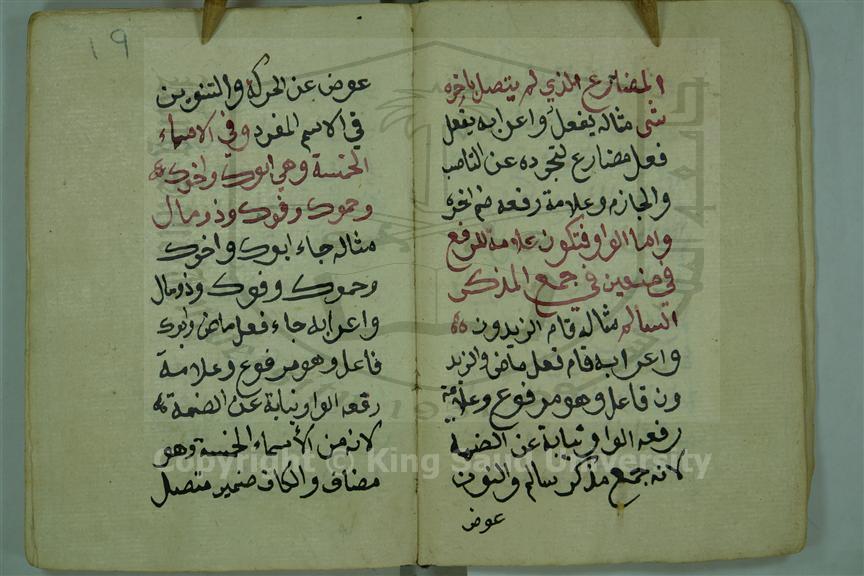 المضارع الذي لم يتصل باخره
شى مثاله يفعل واعرابه يفعل
فعل مضارع لتجرده عن الناصب
والجازم وعلامة رفعه ضم اخره
واما الواو فتكون علامة للرفع
في موضعين في جمع المذكر
السالم مثاله قام الزيدون
واعرابه قام فعل ماض والزيد
ون فاعل وهو مرفوع وعلامة
رفعه الواو نيابة عن الضمة
لانه جمع مذكر سالم والنون
عوض
١٩
عوض عن الحركة والتنوين
في الاسم المفرد وفي الاسماء
الخمسة وهي ابوك واخوك
وحموك وفوك وذو مال
مثاله جاء ابوك واخوك
وحموك وفوك وذو مال
واعرابه جاء فعل ماض وابوك
فاعل وهو مرفوع وعلامة
رفعه الواو نيابة عن الضمة
لانه من الأسماء الخمسة وهو
مضاف والكاف ضمير متصل
Copyright © King Saud University